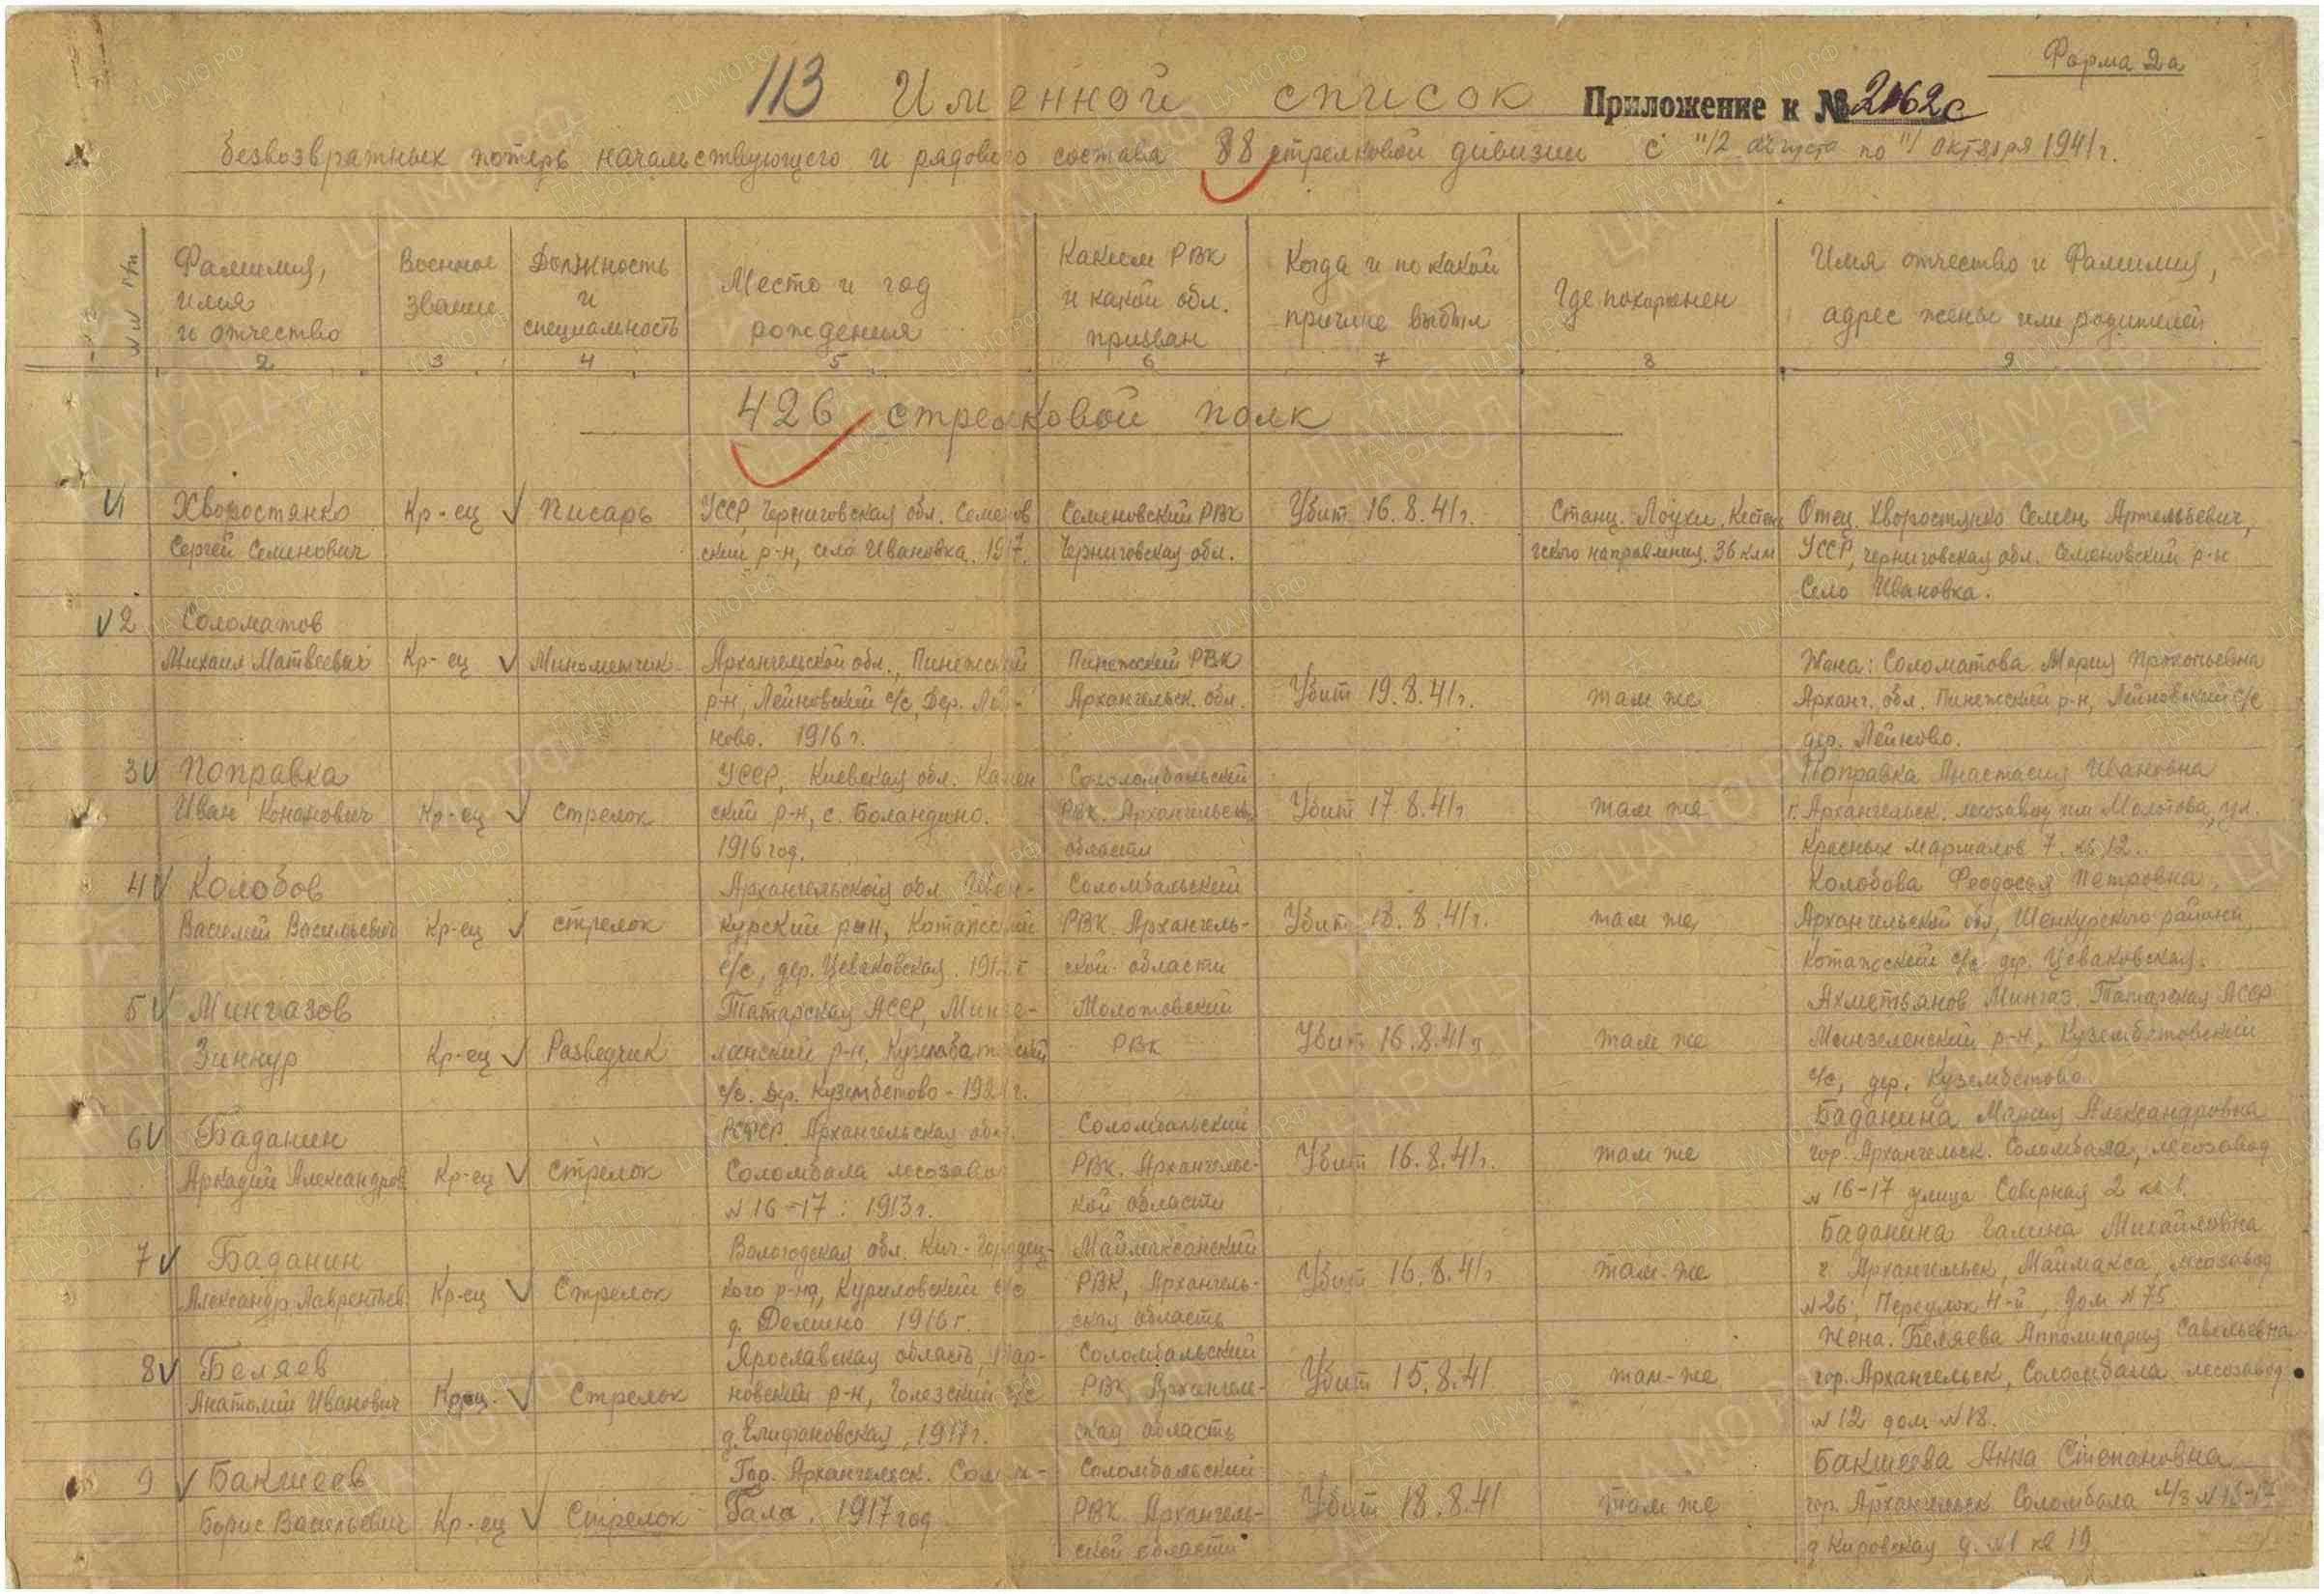 Форма 2а
113 Именной список Приложение к № 2162с
безвозвратных потерь начальствующего и рядового состава 88 стрелковой дивизии с "12 августа по "1 октября 1941г.
№№ п/п
Фамилия, имя и отчество
Военное звание
Должность и специальность
Место и год рождения
Каким РВК и какой обл. призван
Когда и по какой причине выбыл
Где похоронен
Имя отчество и Фамилия, адрес жены или родителей
2 3 4 5 6 7 8 9
426 стрелковой полк
V1 Хворостянко Кр-ец V Писарь УССР, Черниговская обл. Семенов Семеновский РВК Убит 16.8.41г. Станц. Лоухи, Кестен Отец. Хворостянко Семен Артемьевич,
Сергей Семенович ский р-н, село Ивановка. 1917. Черниговская обл. гского направления. 36 клм УССР, Черниговская обл. Семеновский р-н
Село Ивановка.
V2 Соломатов
Михаил Матвеевич Кр-ец V Минометчик Архангельской обл., Пинежский Пинежский РВК Жена: Соломатова Мария Прокопьевна
р-н, Лейновский с/с, Дер. Лей- Архангельск. обл. Убит 19.8.41г. там же Арханг. обл. Пинежский р-н, Лейновский с/с
ново. 1916г. дер. Лейново.
3V Поправка УССР, Киевская обл. Камен Сололомбальский Поправка Анастасия Ивановна
Иван Кононович Кр-ец V стрелок ский р-н, с. Баландино. РВК. Архангельск. Убит 17.8.41г там же г. Архангельск. лесозавод им Молотова, ул.
1916 год. области Красных маршалов 7. кв. 12.
4V Колобов Архангельской обл Шен- Соломбальский Колобова Феодосья Петровна,
Василий Васильевич Кр-ец V стрелок курский р-н, Котажский РВК. Архангель- Убит 18.8.41г. там же Архангельской обл, Шенкурского района,
с/с, дер. Цеваковская. ской области Котажский с/с дер. Цеваковская.
5V Мингазов Татарская АССР, Минзе- Молотовский Ахметьянов Мингаз, Татарская АССР
Зиннур Кр-ец V Разведчик ланский р-н, Кузембатовский РВК Убит 16.8.41г там же Мензеленский р-н, Кузембетовский
с/с. Дер. Кузембетово - 1921г. с/с, дер. Кузембетово.
6V Баданин РСФСР. Архангельская обл. Соломбальский Баданина Мария Александровна
Аркадий Александров Кр-ец V стрелок Соломбала лесозавод РВК. Архангельс- Убит 16.8.41г. там же гор. Архангельск. Соломбала, лесозавод
№16-17. 1913г. кой области № 16-17 улица Северная 2 кв 1.
7V Баданин Вологодская обл. Кич-Городец- Маймаксанский Баданина Галина Михайловна
Александр Лаврентьев Кр-ец V Стрелок кого р-на, Куриловский с/с РВК, Архангель- Убит 16.8.41г там-же г. Архангельск, Маймакса, лесозавод
д. Демино 1916г. ская область №26, Переулок 4-й, Дом №75
8V Беляев Ярославская область, Соломбальский Жена. Беляева Апполинария Савельевна
Анатолий Иванович Кр-ец. V Стрелок новский р-н, Голезский с/с РВК Архангель- Убит 15.8.41 там-же гор. Архангельск, Соломбала лесозавод
д. Епифановская, 1917г. ская область №12 дом №18.
9 V Бакшеев Гор. Архангельск. Солом- Соломбальский Бакшеева Анна Степановна
Борис Васильевич Кр-ец V Стрелок бала. 1917 год РВК Архангель- Убит 18.8.41 там же гор. Архангельск Соломбала л/з №16-17
ской области д Кировская д. №1 кв 19